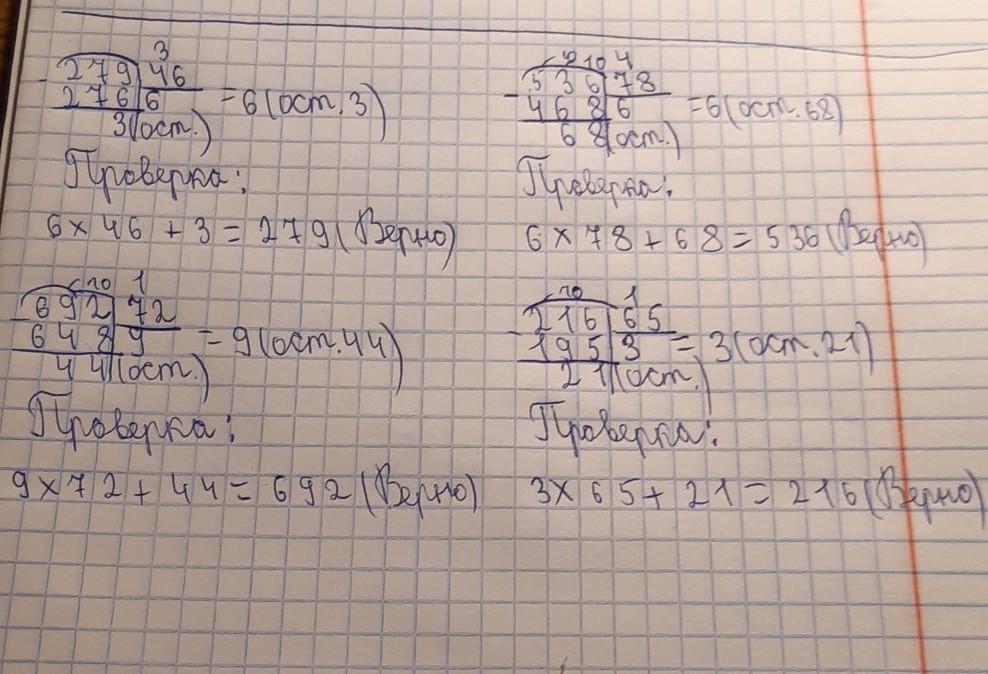 3
279 46
- 276 6 =6(ост.3)
3(ост.)
Проверка:
6×46+3=279(Верно)
210 4
536 78
- 468 6 =6(ост.68)
68(ост.)
Проверка:
6×78+68=536(Верно)
10 1
692 72
- 648 9 =9(ост.44)
44(ост.)
Проверка:
9×72+44=692(Верно)
10 1
216 65
- 195 3 =3(ост.21)
21(ост.)
Проверка:
3×65+21=216(Верно)